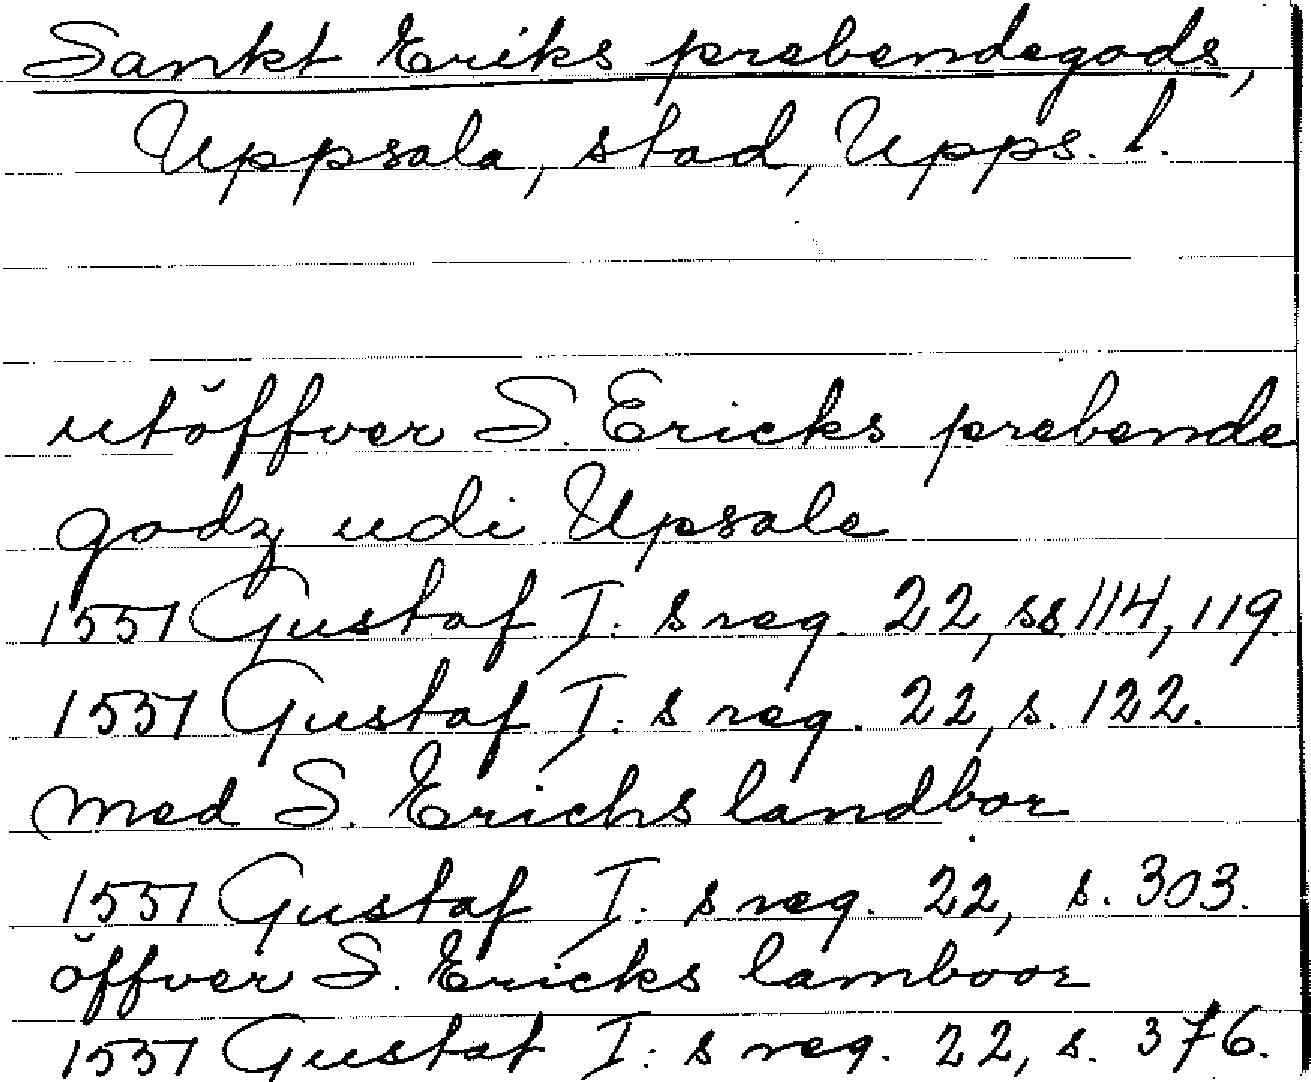 Sankt Eriks prebendegods,
Uppsala, stad, Upps. l.
utöffver S. Ericks prebende
godz udi Upsale
1551 Gustaf I: s reg. 22, ss 114, 119
1551 Gustaf I: s reg. 22, s. 122.
med S. Erichs landbor
1551 Gustaf I: s reg. 22, s. 303.
öffver S. Ericks lamboor
1551 Gustaf I: s reg. 22, s. 376.